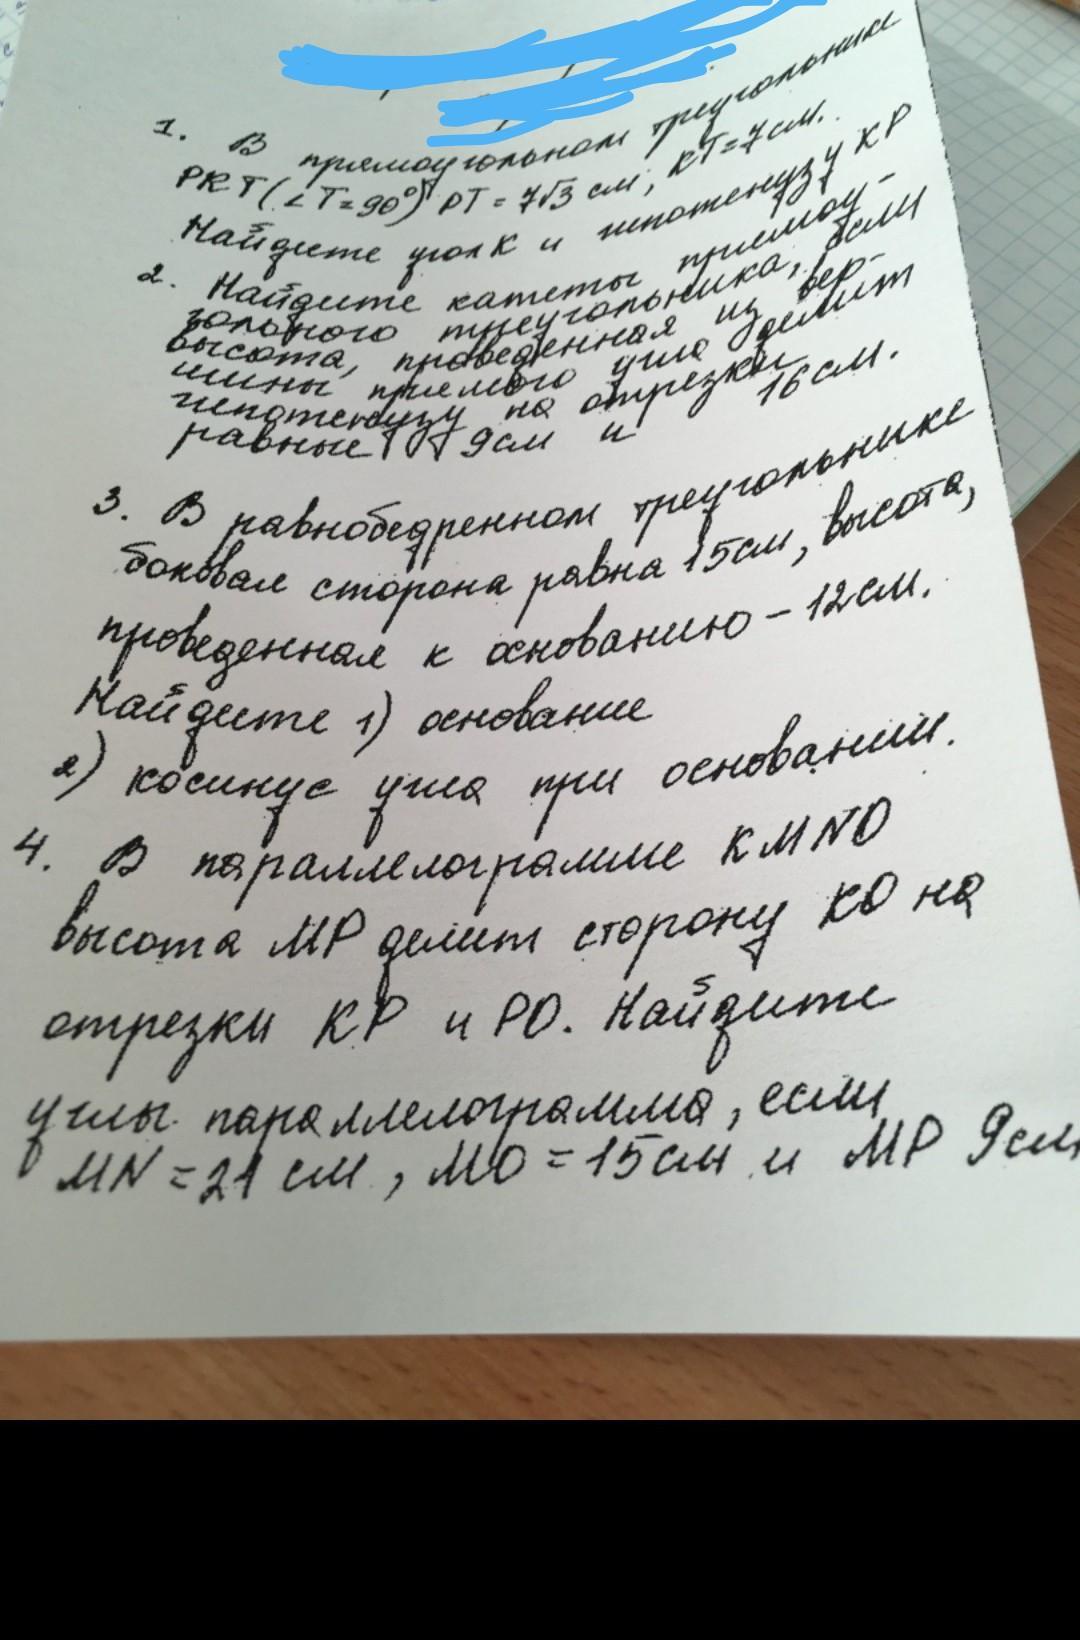 1. В прямоугольном треугольнике
PKT (∠T=90°) PT = 7√3 см, KT=7см.
Найдите угол K и гипотенузу KP
2. Найдите катеты прямоу-
гольного треугольника, если
высота, проведенная из вер-
шины прямого угла делит
гипотенузу на отрезки
равные 9см и 16см.
3. В равнобедренном треугольнике
боковая сторона равна 15см, высота,
проведенная к основанию – 12см.
Найдите 1) основание
2) косинус угла при основании.
4. В параллелограмме KMNO
высота MP делит сторону KO на
отрезки KP и PO. Найдите
углы параллелограмма, если
MN = 21 см, MO = 15см и MP 9см